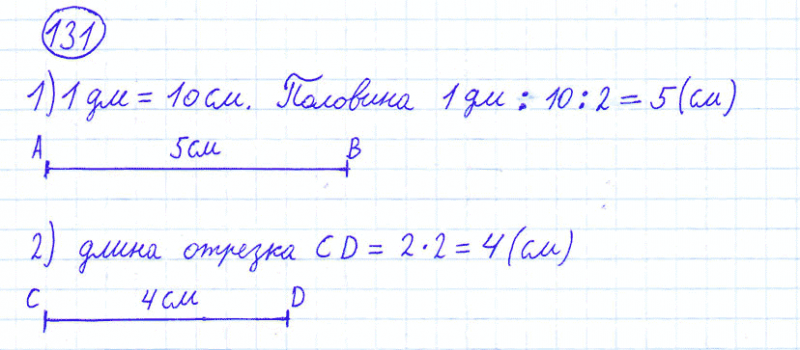 131
1) 1 дм = 10 см. Половина 1 дм : 10 : 2 = 5 (см)
A 5 см B
2) длина отрезка CD = 2 · 2 = 4 (см)
C 4 см D